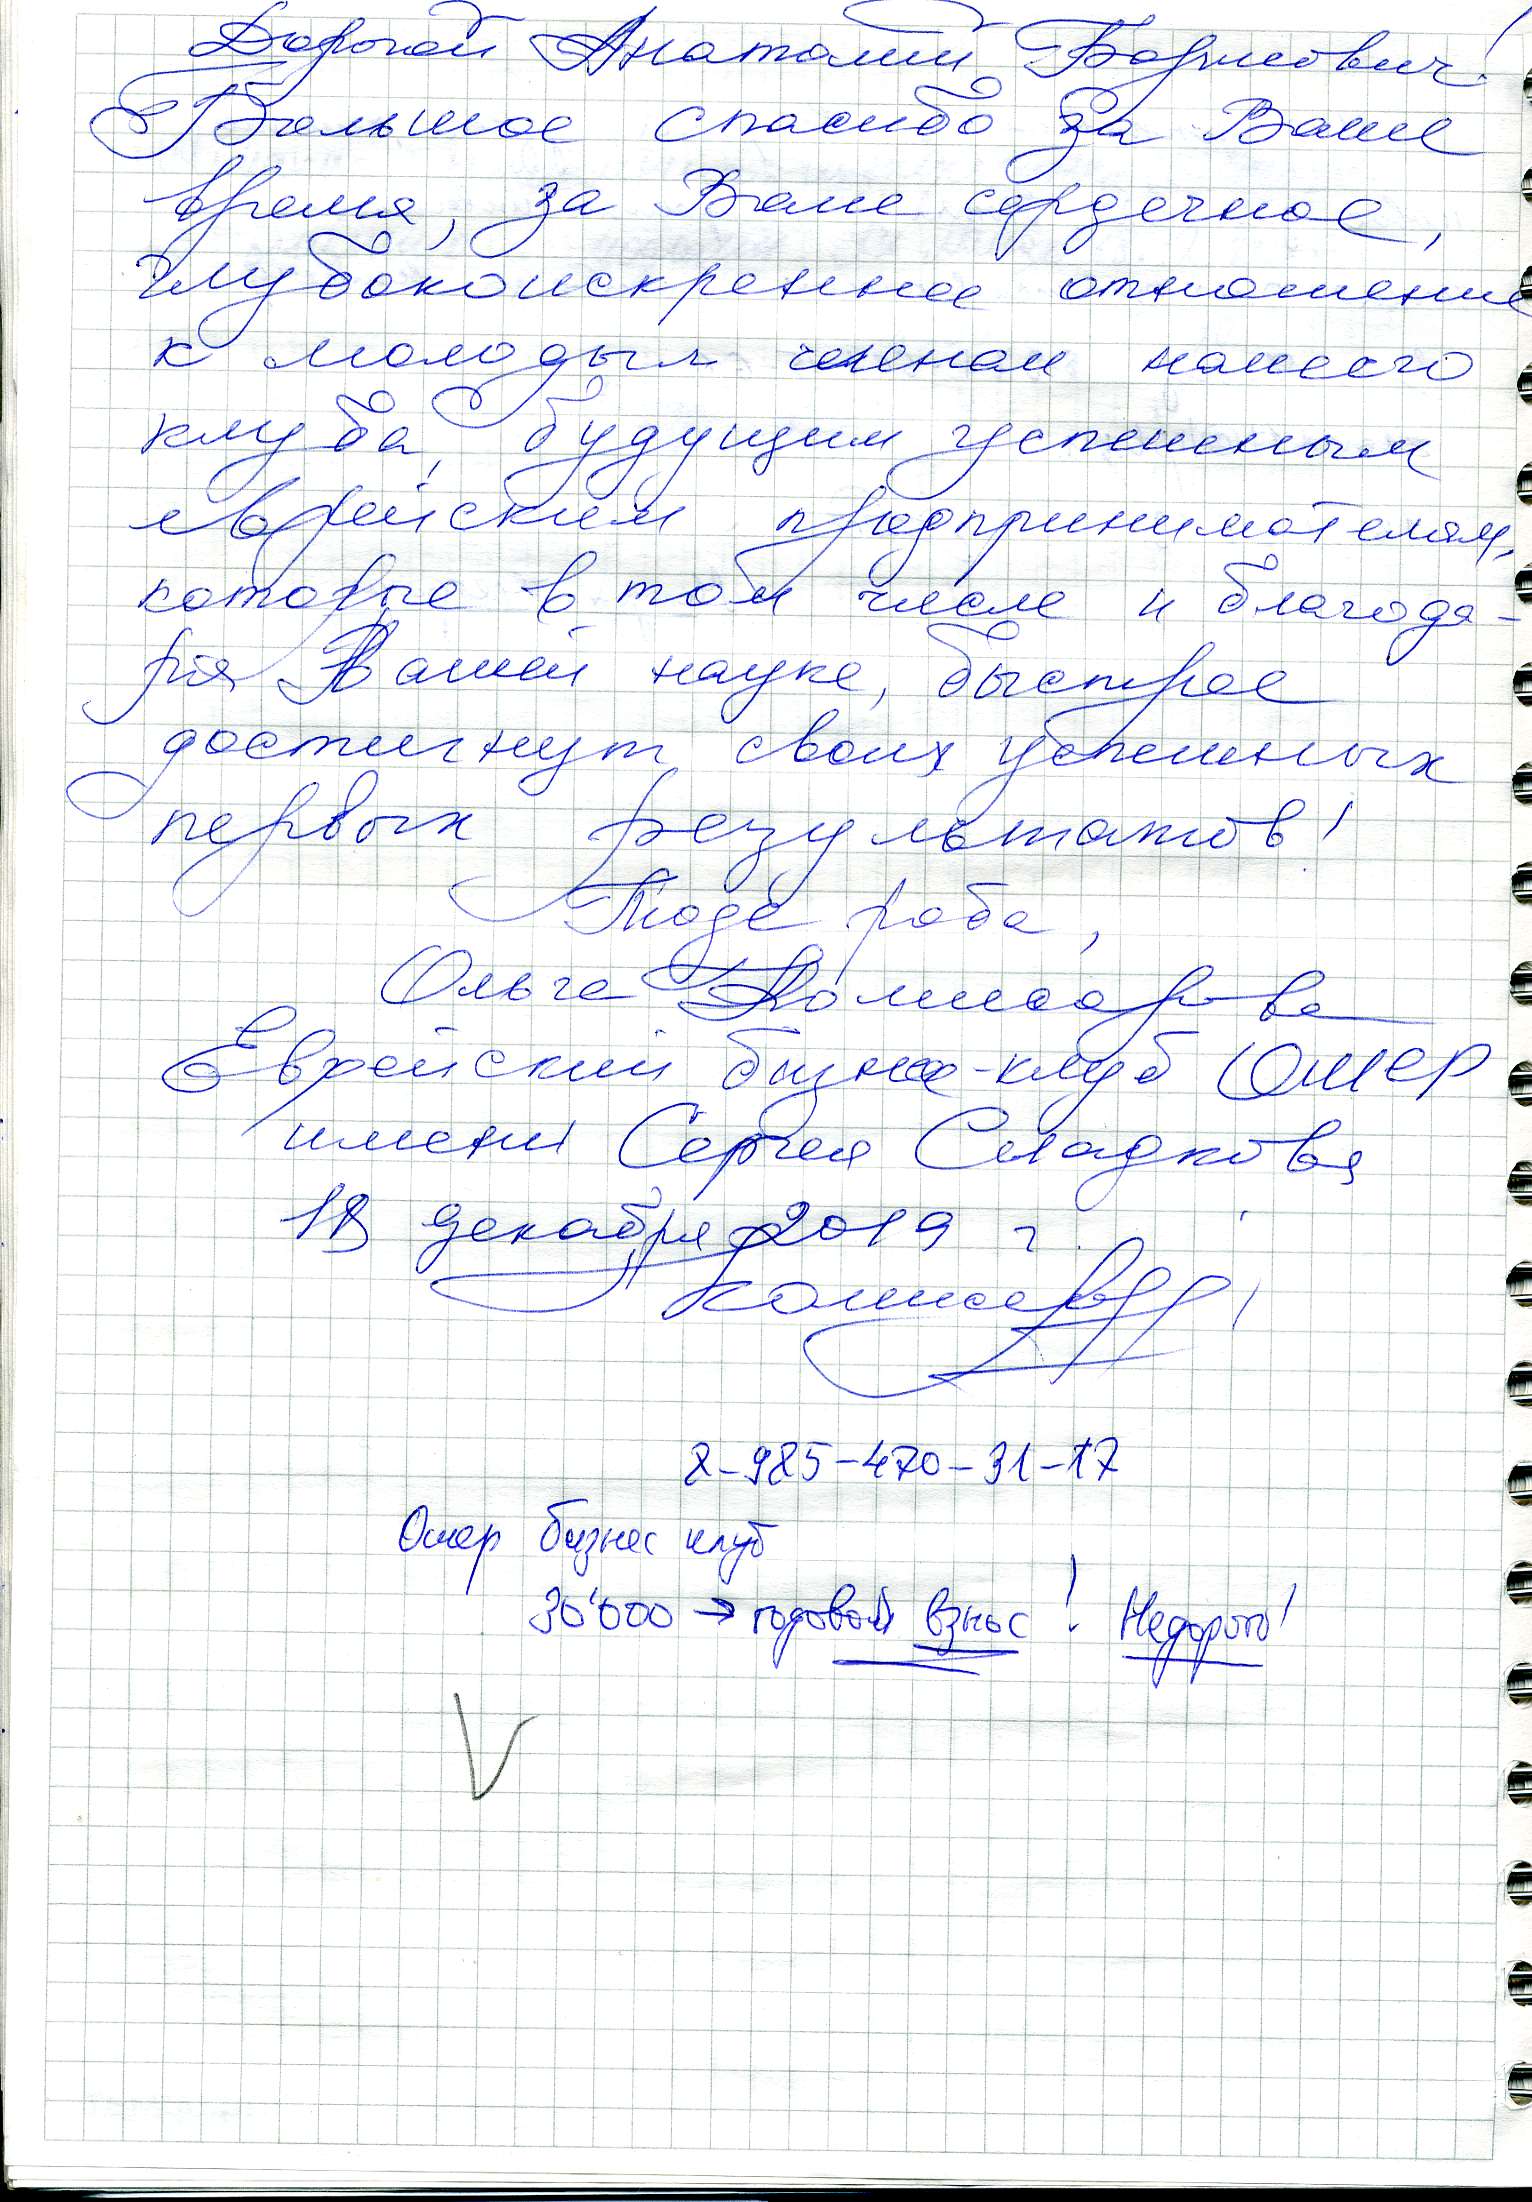 Дорогой Анатолий Борисович!
Большое спасибо за Ваше
время, за Ваше сердечное,
глубокоискреннее отношение
к молодым членам нашего
клуба, будущим успешным
еврейским предпринимателям,
которые в том числе и благода-
ря Вашей науке, быстрее
достигнут своих успешных
первых результатов!
Тода раба,
Ольга Комисарова
Еврейский бизнес-клуб Ошер
имени Сергея Сладкова
18 декабря 2019 г.
8-985-470-31-17
Ошер бизнес клуб
30'000 → годовой взнос! Недорого!
V